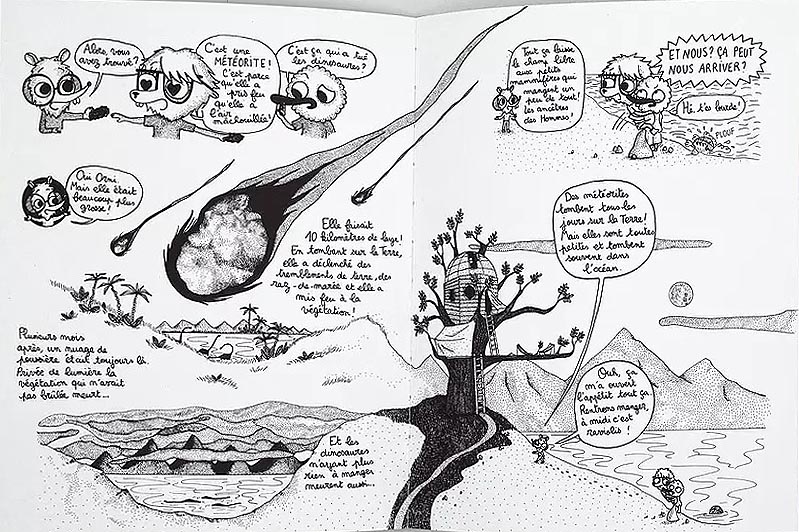 Alors, vous
avez trouvé?
C'est une
MÉTÉORITE!
C'est parce
qu'elle a
pris feu
qu'elle a
l'air
machouillée!
C'est ça qui a tué
les dinosaures?
Oui Orni.
Mais elle était
beaucoup plus
grosse!
Elle faisait
10 kilomètres de large!
En tombant sur la Terre,
elle a déclenché des
tremblements de terre, des
raz-de-marée et elle a
mis feu à la
végétation!
Plusieurs mois
après, un nuage de
poussière était toujours là.
Privée de lumière la
végétation qui n'avait
pas brûlée meurt...
Et les
dinosaures
n'ayant plus
rien à manger
meurent aussi...
Tout ça laisse
le champ libre
aux petits
mammifères qui
mangent un
peu de tout!
les ancêtres
des Hommes!
ET NOUS? ÇA PEUT
NOUS ARRIVER?
Hé, t'es lourde!
PLOUF
Des météorites
tombent tous les
jours sur la Terre!
Mais elles sont toutes
petites et tombent
souvent dans
l'océan.
Ouh, ça
m'a ouvert
l'appétit tout ça.
Rentrons manger,
à midi c'est
raviolis!